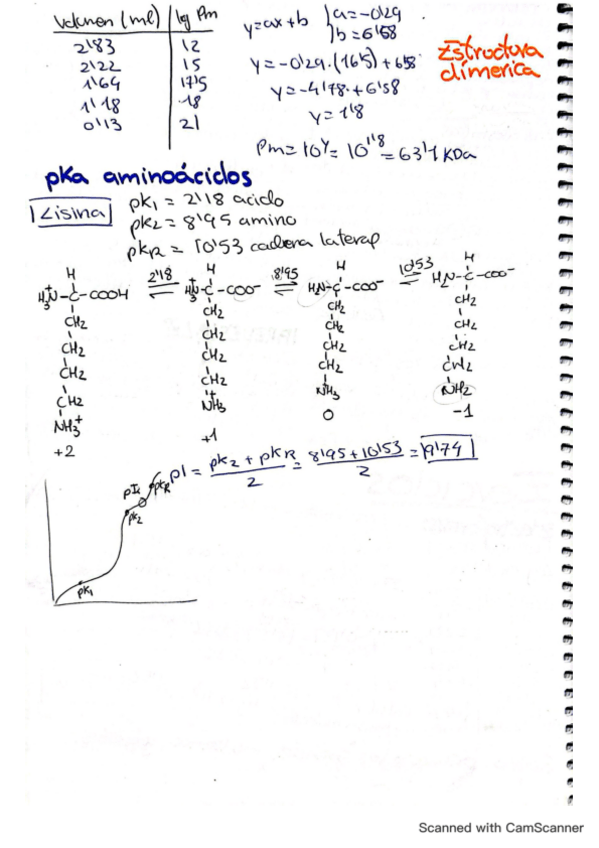 Volumen (ml) | lg Pm
2'83 | 12
2'22 | 15
1'64 | 17'5
1'18 | 18
0'13 | 21
y=ax+b { a=-0'29
b=6'58
y=-0'29·(16'5)+6'58
y=-4'78+6'58
y=1'8
Pm=10^y=10^1'8=63'1 KDa
Estructura
dimerica
pKa aminoácidos
Lisina
pk1 = 2'18 acido
pk2 = 8'95 amino
pkR = 10'53 cadena lateral
H H H H
H3N+-C-COOH ⇌ 2'18 H3N+-C-COO- ⇌ 8'95 H2N-C-COO- ⇌ 10'53 H2N-C-COO-
CH2 CH2 CH2 CH2
CH2 CH2 CH2 CH2
CH2 CH2 CH2 CH2
CH2 CH2 CH2 CH2
NH3+ NH3+ NH3+ NH2
+2 +1 0 -1
pI = pk2 + pkR / 2 = 8'95+10'53 / 2 = 9'74
pI
pkR
pk2
pk1
Scanned with CamScanner